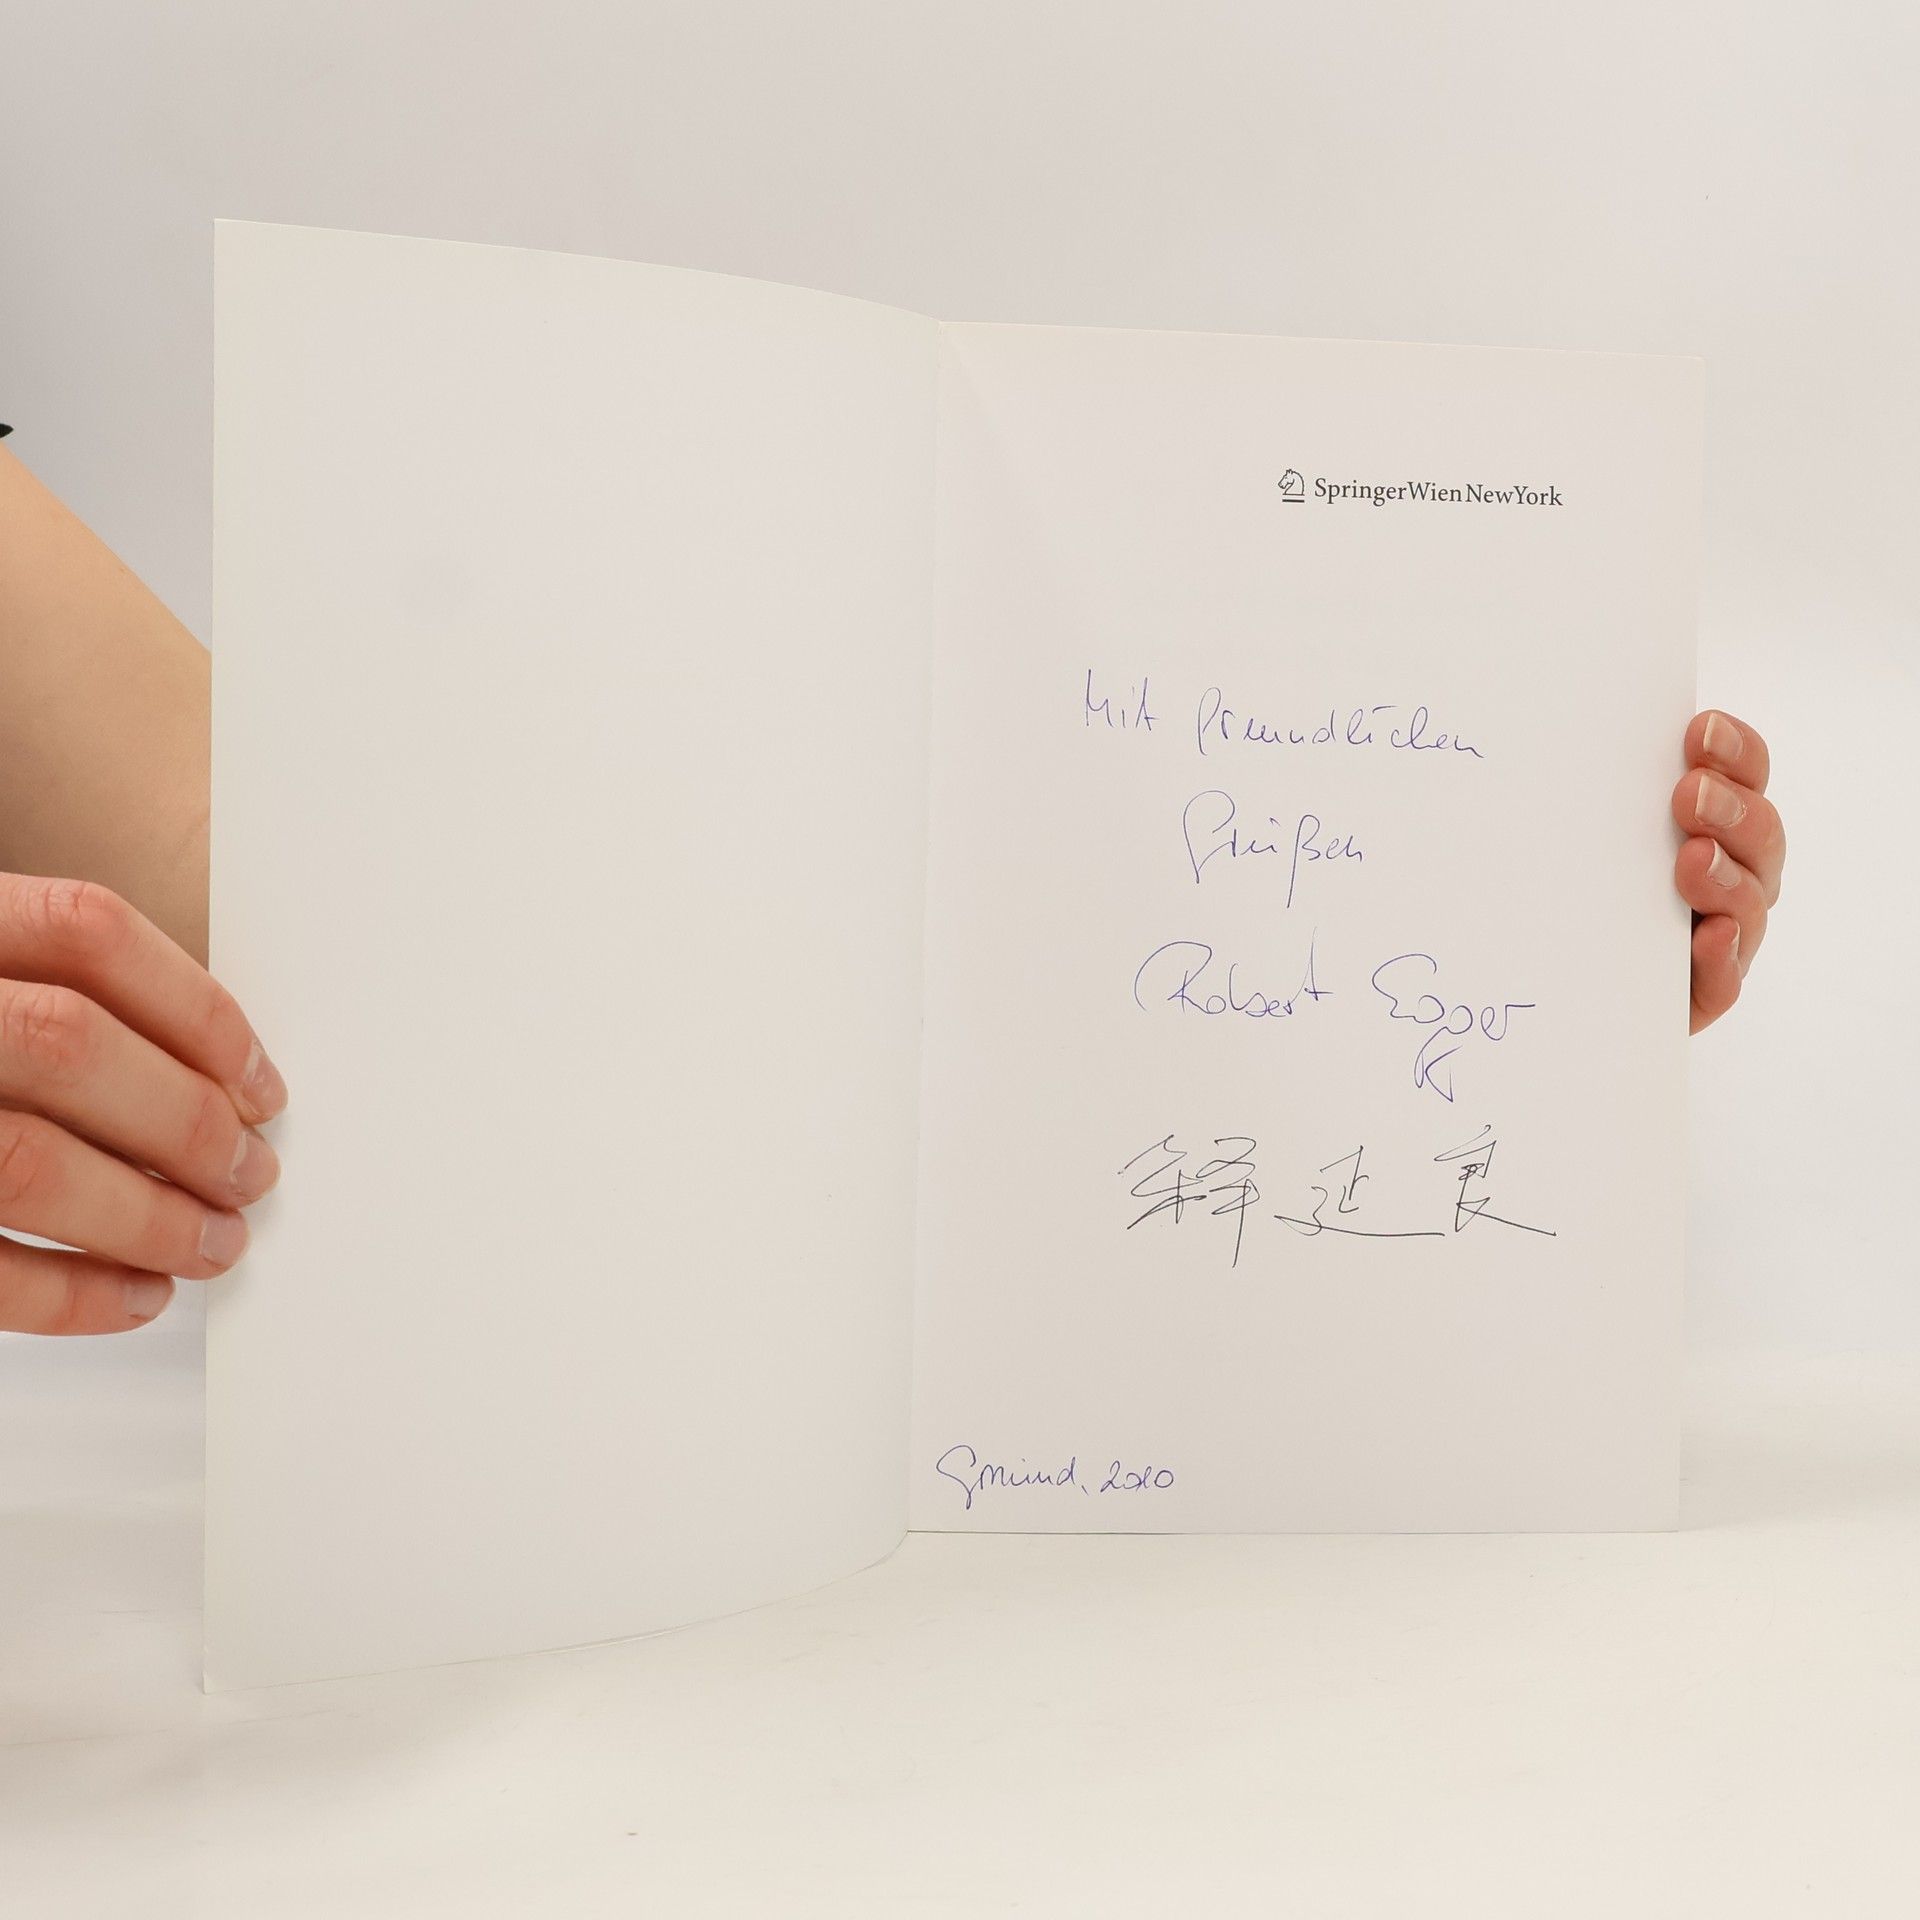 SpringerWienNewYork
Mit freundlichen
Grüßen
Robert Egger
释延良
Gmünd, 2010